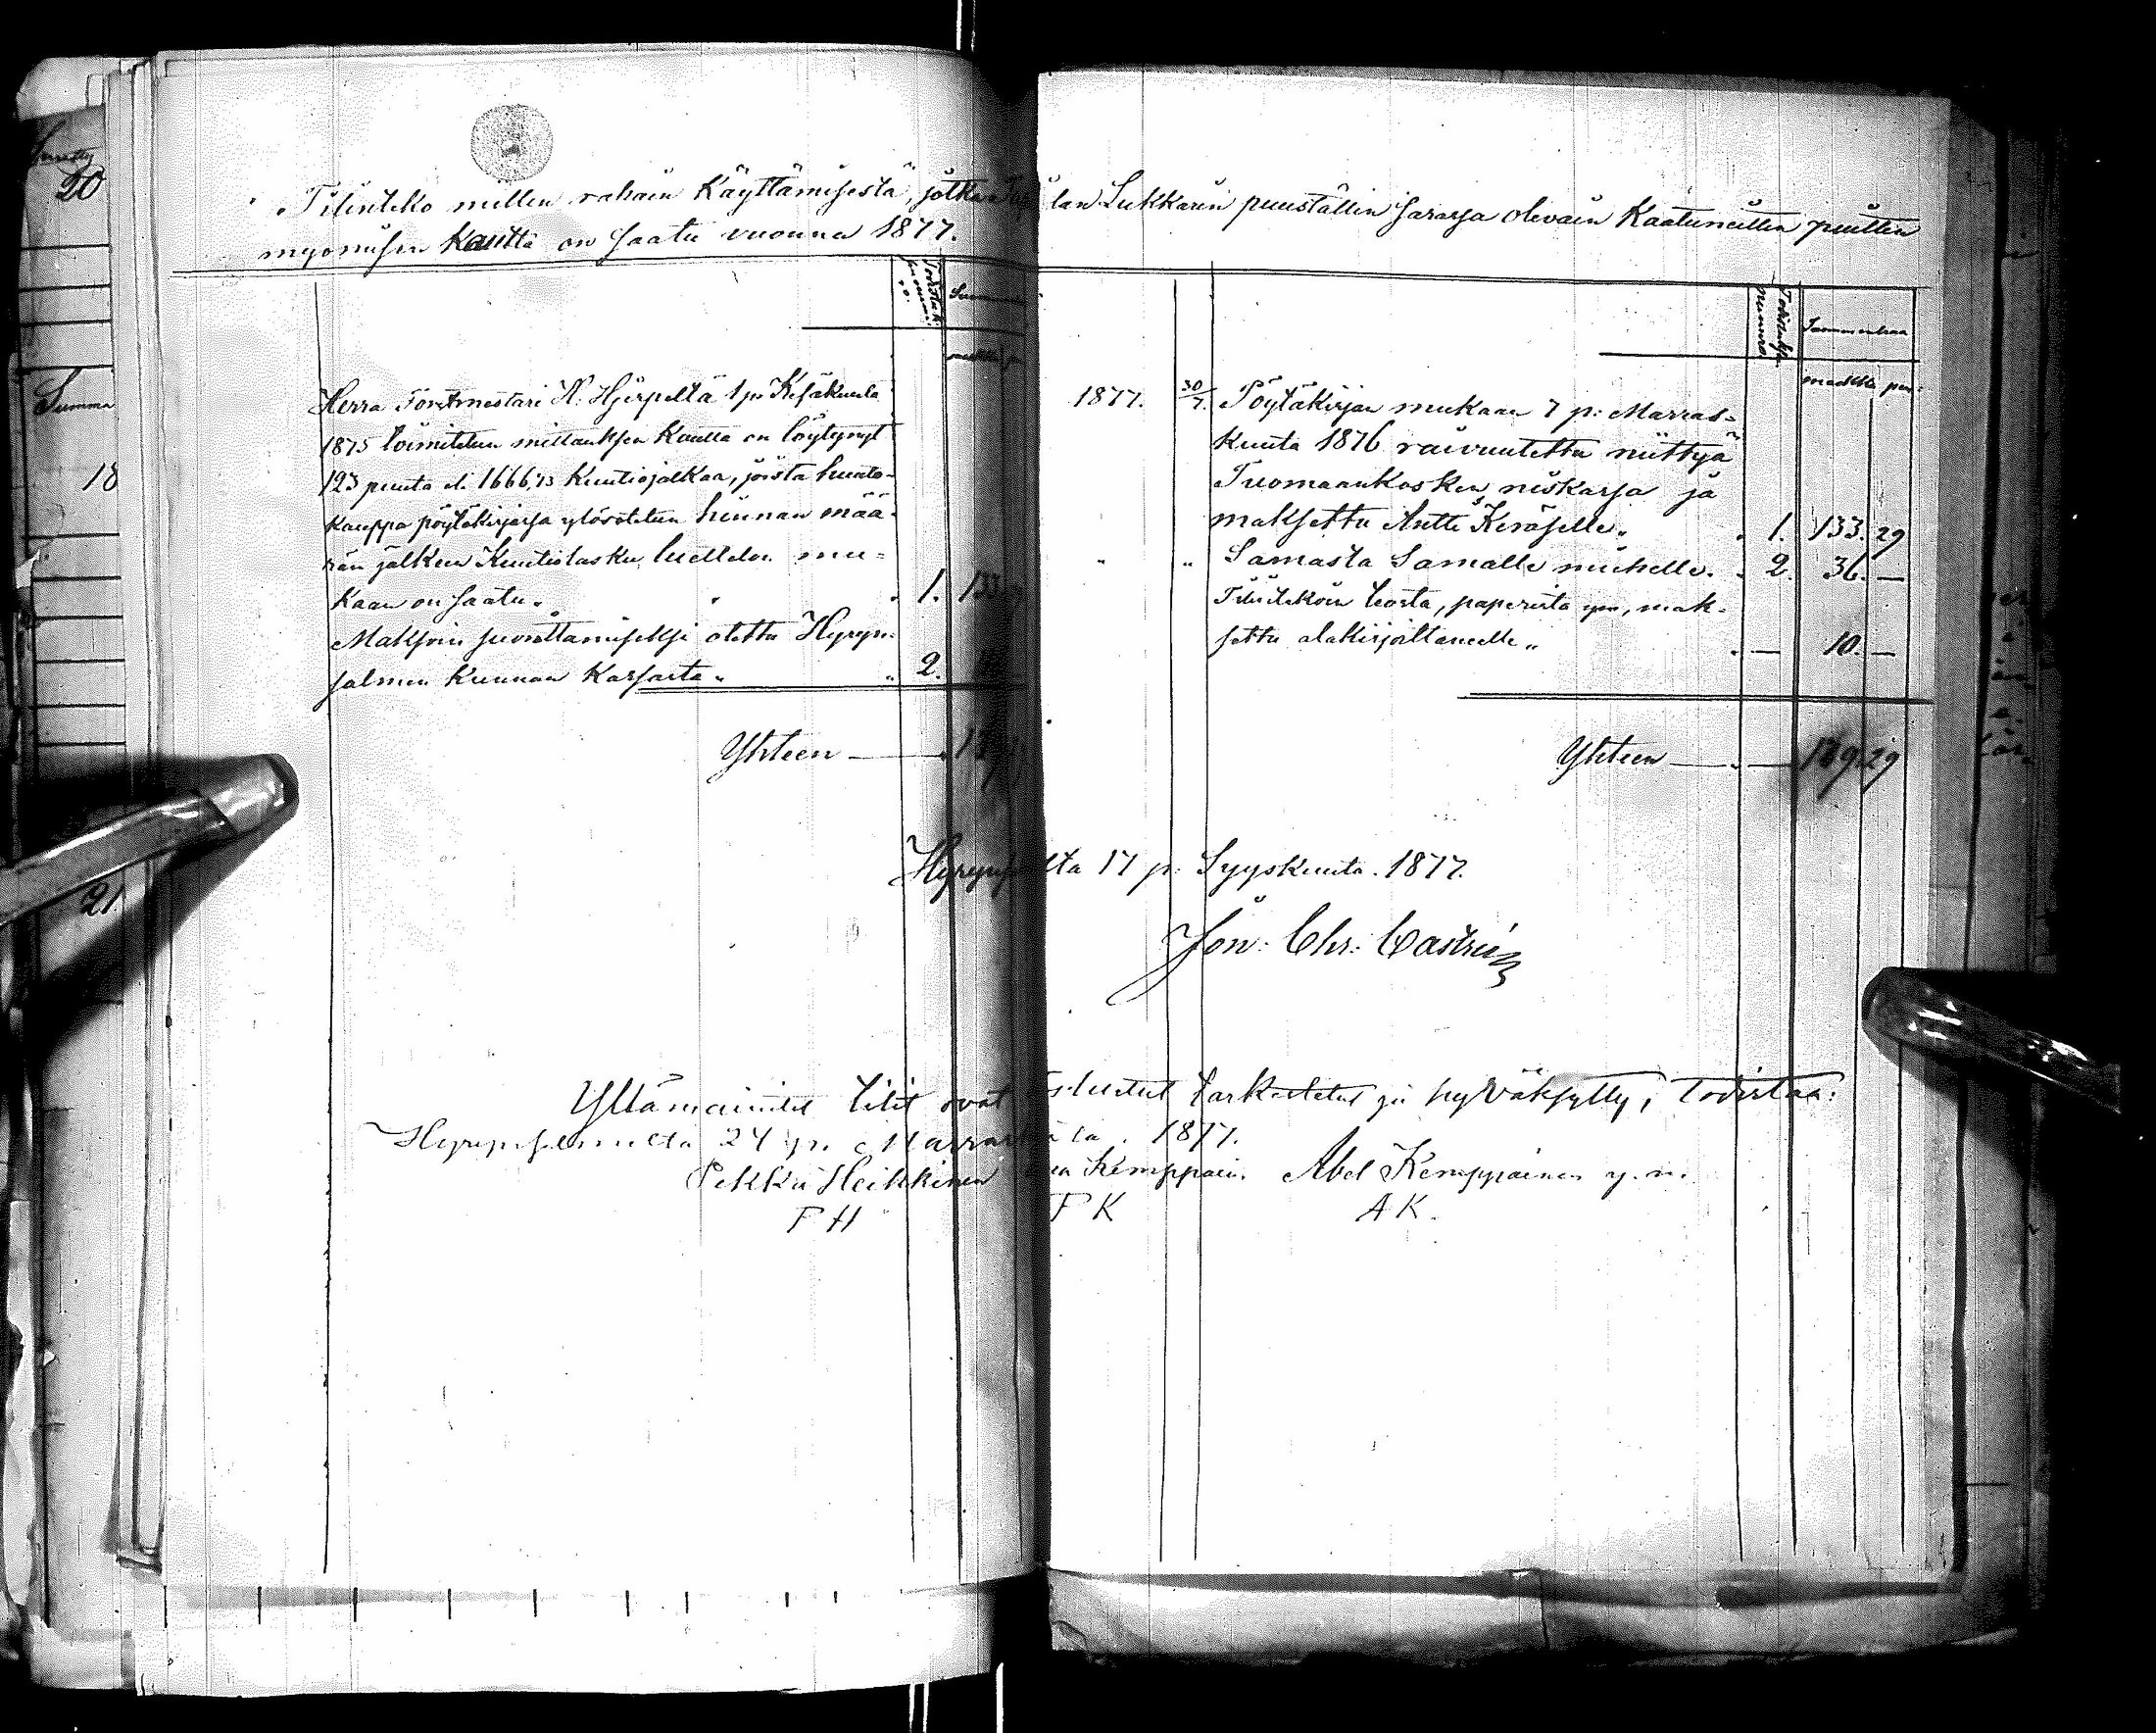 Tilinteko niitten rahain Käyttämisestä, jotka lan Lukkarin puuställin sarassa olevain Kaatuneitten puitten
myömisen Kautta on saatu vuonna 1877.
Herra Forstmestari H. Hjerpeltä 1 p: Kesäkuuta
1875 toimitetun mittauksen Kautta on löytynyt
123 puuta el. 1666,73 Kuutiojalkaa, joista huuto-
kauppa pöytäkirjassa ylösotetun hinnan mää-
rän jälkeen Kuutiolasku luettelon mu-
kaan on saatu 1. 133
Maksoin suorittamiseksi otettu Hyryn-
salmen Kunnan Kassasta 2.
Yhteen
Todistuksen nummero
Summa
markka pen:
1877. 30/7. Pöytäkirjan mukaan 7 p: Marras-
kuuta 1876 raivuutettu niittyä
Tuomaankosken niskassa ja
maksettu Antti Keräselle 1. 133. 29
" " Samasta Samalle miehelle 2. 36. —
Tilintekoin teosta, paperista ym, mak-
settu alakirjoittaneelle — 10. —
Yhteen 179. 29
17 p: Syyskuuta 1877.
Joh: Chr: Castrén
Yllämainitut tilit ovat tarkastetut ja hyväksytty, todistaa:
Hyrynsalmelta 24 p. 1877.
Pekka Heikkinen Kemppain. Abel Kemppainen y. m.
P H P K A K.
Summa
20
Summa
18
21